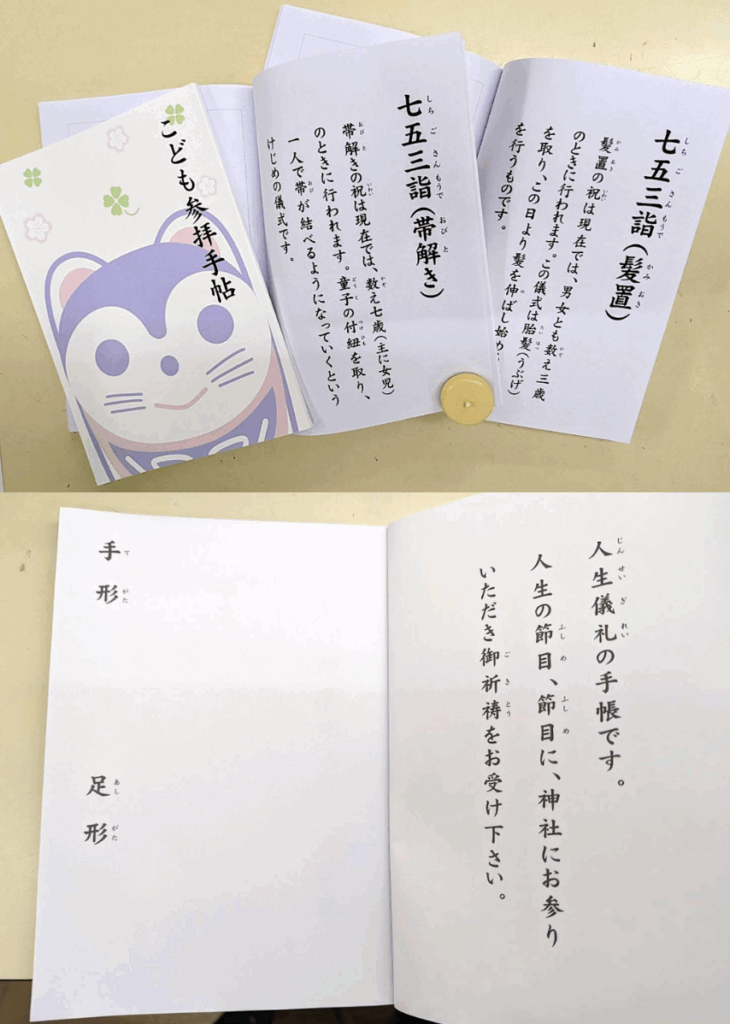 こども参拝手帖
七五三詣(帯解き)
帯解きの祝は現在では、数え七歳(主に女児)
のときに行われます。童子の付紐を取り、
一人で帯が結べるようになっていくという
けじめの儀式です。
七五三詣(髪置)
髪置の祝は現在では、男女とも数え三歳
のときに行われます。この儀式は胎髪(うぶげ)
を取り、この日より髪を伸ばし始め
を行うものです。
人生儀礼の手帳です。
人生の節目、節目に、神社にお参り
いただき御祈祷をお受け下さい。
手形
足形